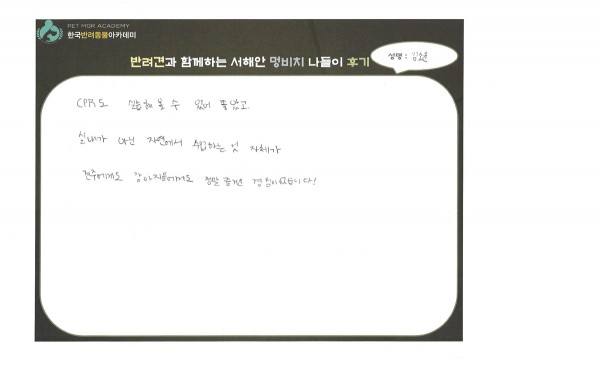 PET MGR ACADEMY
한국반려동물아카데미
반려견과 함께하는 서해안 멍비치 나들이 후기
성명 : 김소윤
CPR도 실습해 볼 수 있어 좋았고
실내가 아닌 자연에서 수업하는 것 자체가
견주에게도 강아지들에게도 정말 좋은 경험이었습니다!